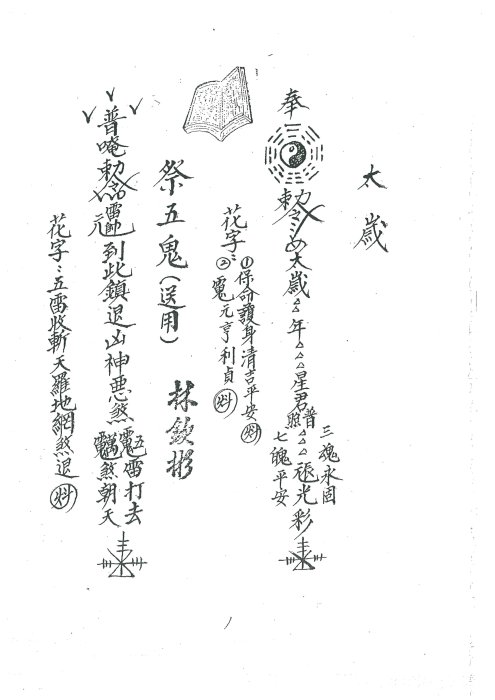 太歲
奉
勅令
太歲△△年△△△星君
普照△△△
三魂永固
七魄平安
花字：
①保命護身清吉平安
②
元亨利貞
祭五鬼（送用）
林欽彬
普唵勅令
雷帥
元
到此鎮退凶神悪煞
五雷打去
煞朝天
花字：五雷收斬天羅地網煞退